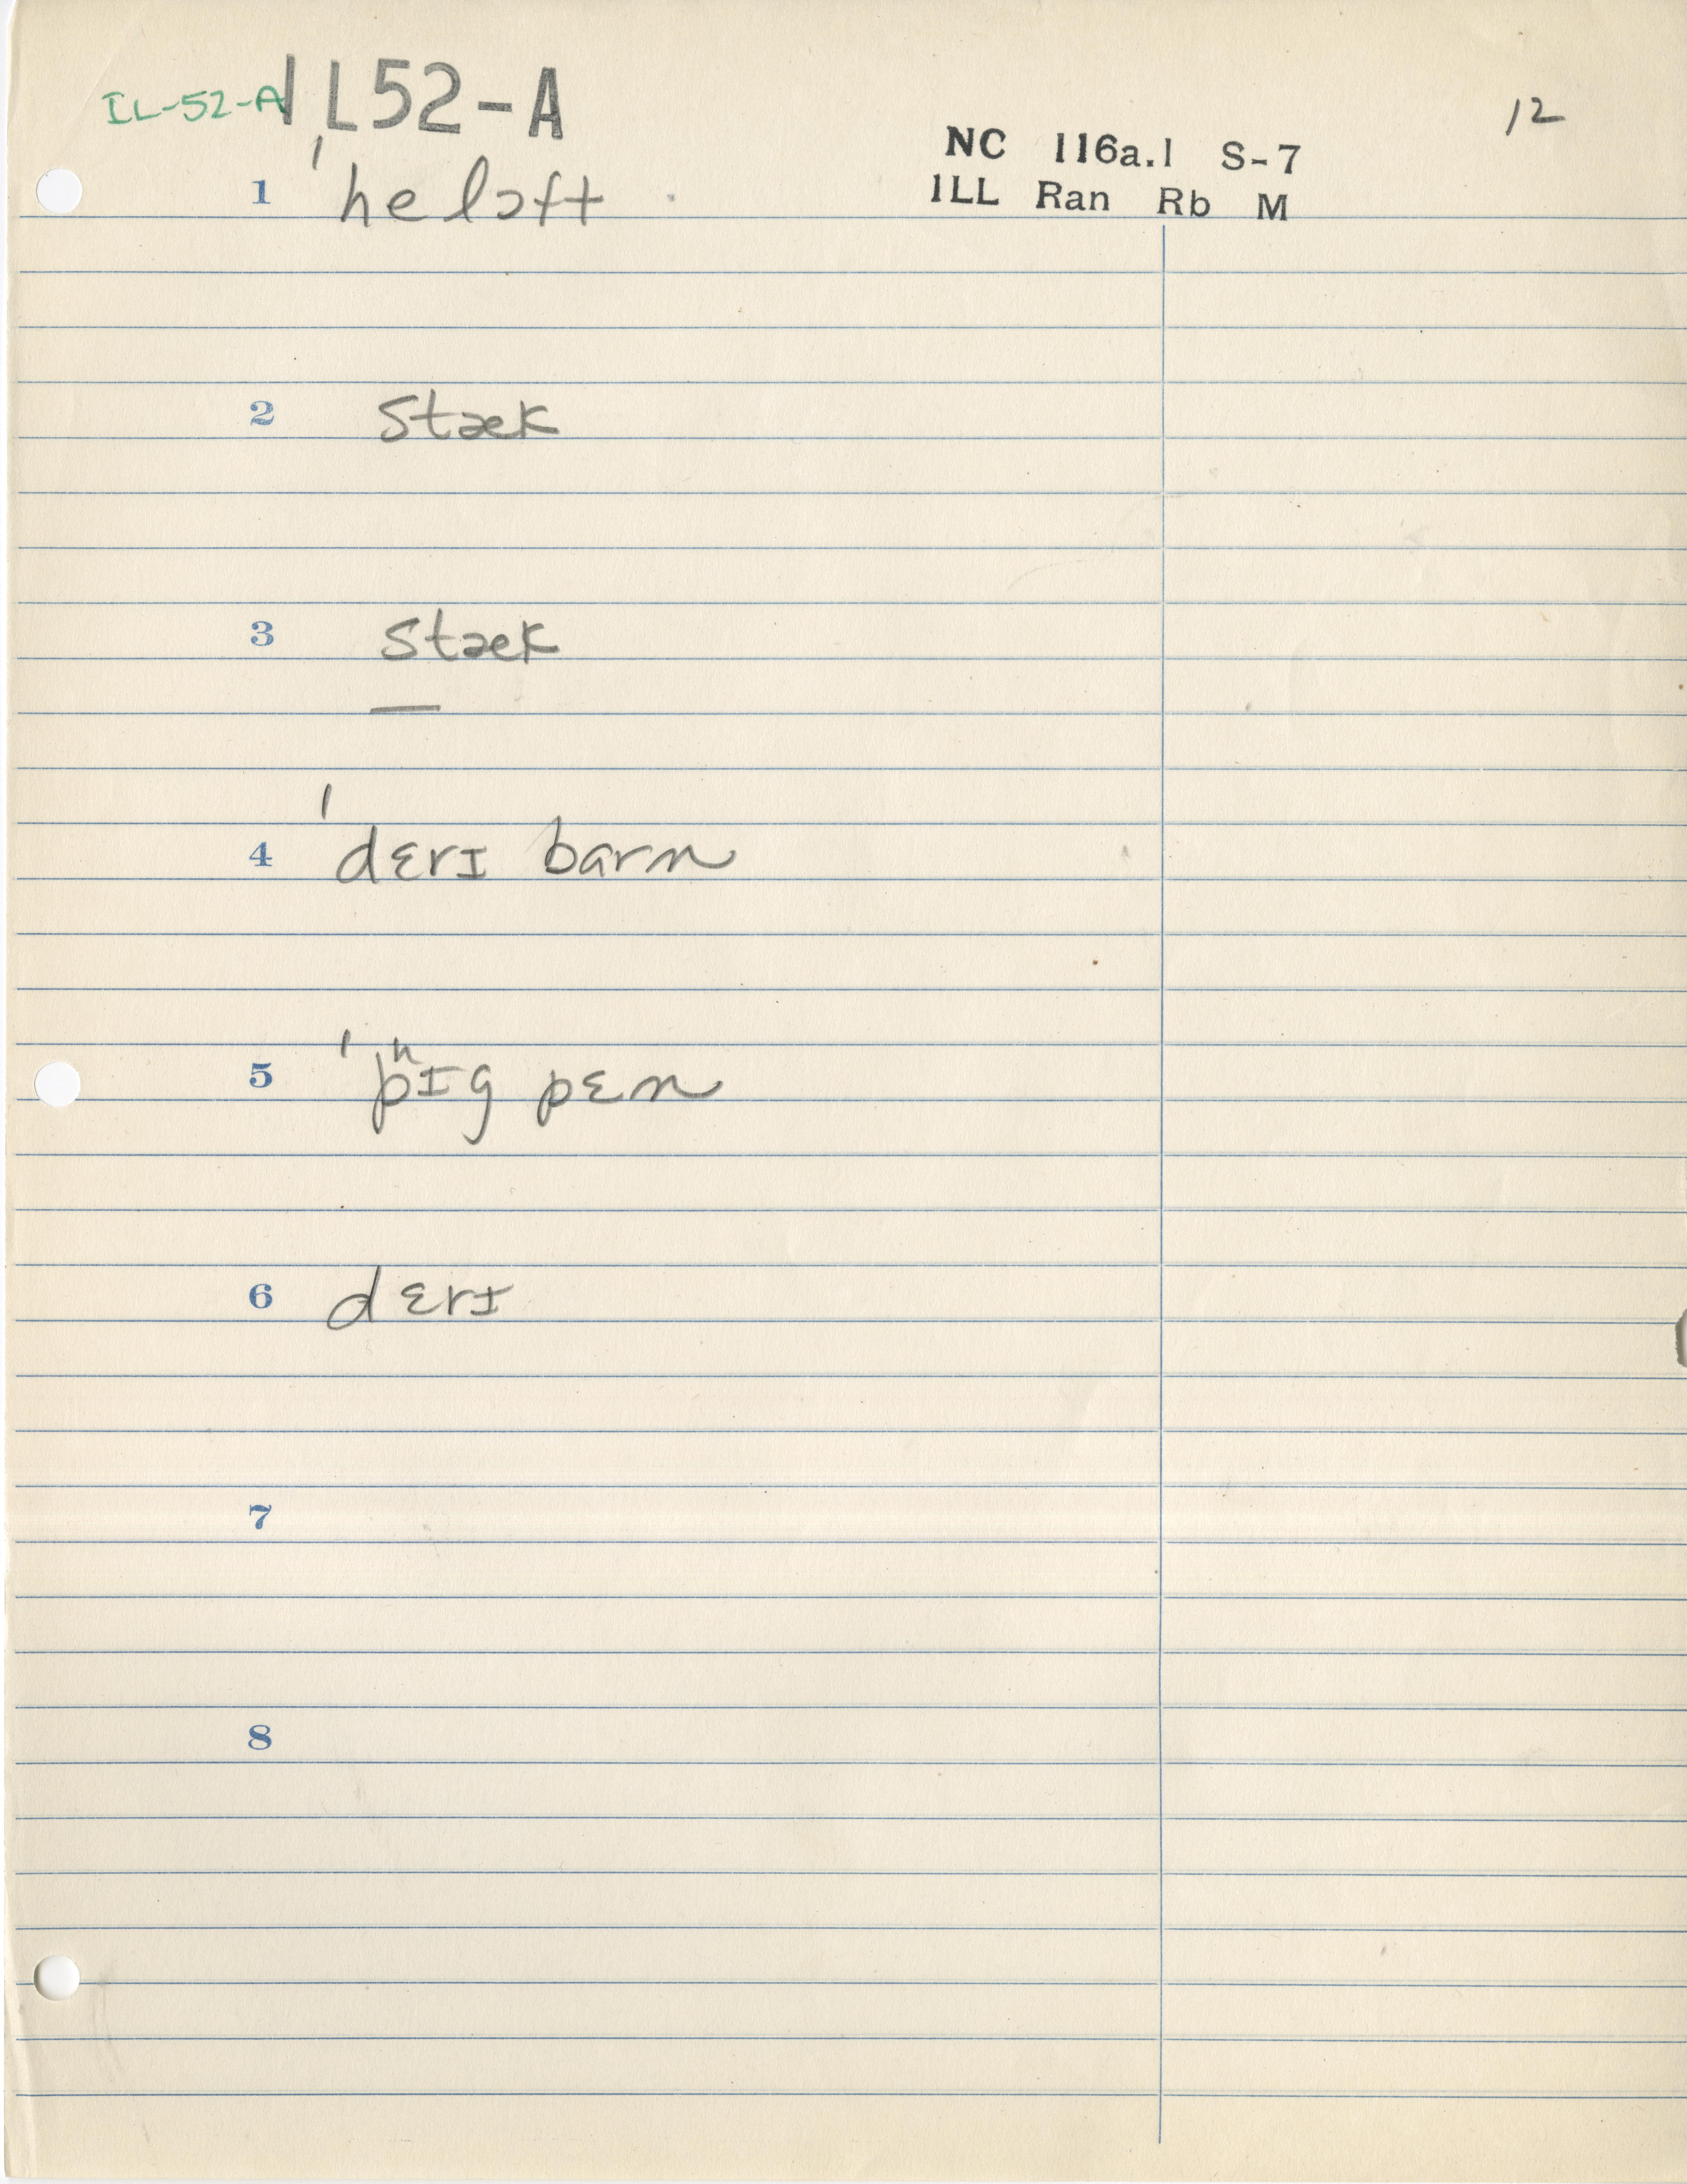 IL-52-A IL52-A
12
NC 116a.1 S-7
ILL Ran Rb M
1 ˈheloft
2 stæk
3 stæk
—
4 ˈdɛrɪ barn
5 ˈpʰɪg pɛn
6 dɛrɪ
7
8